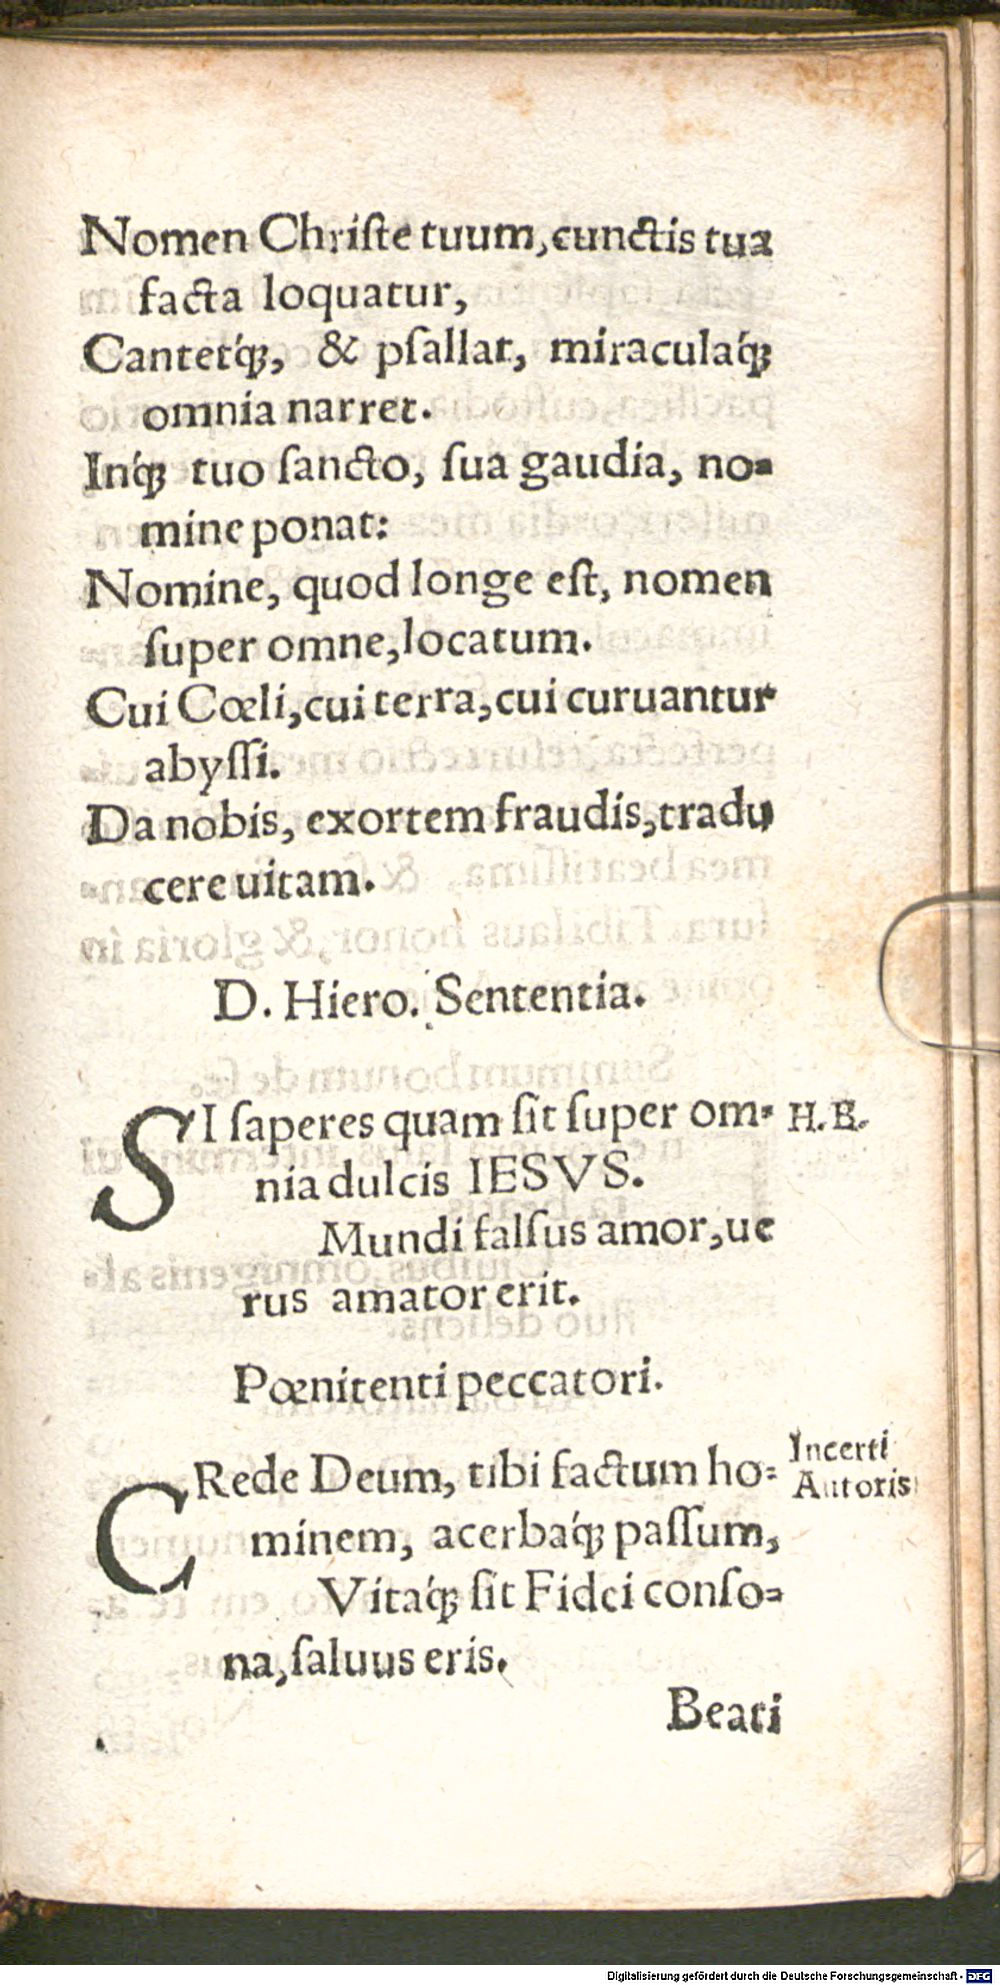 Nomen Chriſte tuum, cunctis tua
facta loquatur,
Cantetq́ꝫ, & pſallat, miraculaq́ꝫ
omnia narret.
Inq́ꝫ tuo ſancto, ſua gaudia, no-
mine ponat:
Nomine, quod longe eſt, nomen
ſuper omne, locatum.
Cui Cœli, cui terra, cui curuantur
abyſſi.
Da nobis, exortem fraudis, tradu
cere uitam.
D. Hiero. Sententia.
SI ſaperes quam ſit ſuper om- H. B.
nia dulcis IESVS.
Mundi falſus amor, ue
rus amator erit.
Pœnitenti peccatori.
CRede Deum, tibi factum ho- Incerti
minem, acerbaq́ꝫ paſſum, Autoris
Vitaq́ꝫ ſit Fidei conſo-
na, ſaluus eris.
Beati
Digitalisierung gefördert durch die Deutsche Forschungsgemeinschaft - DFG